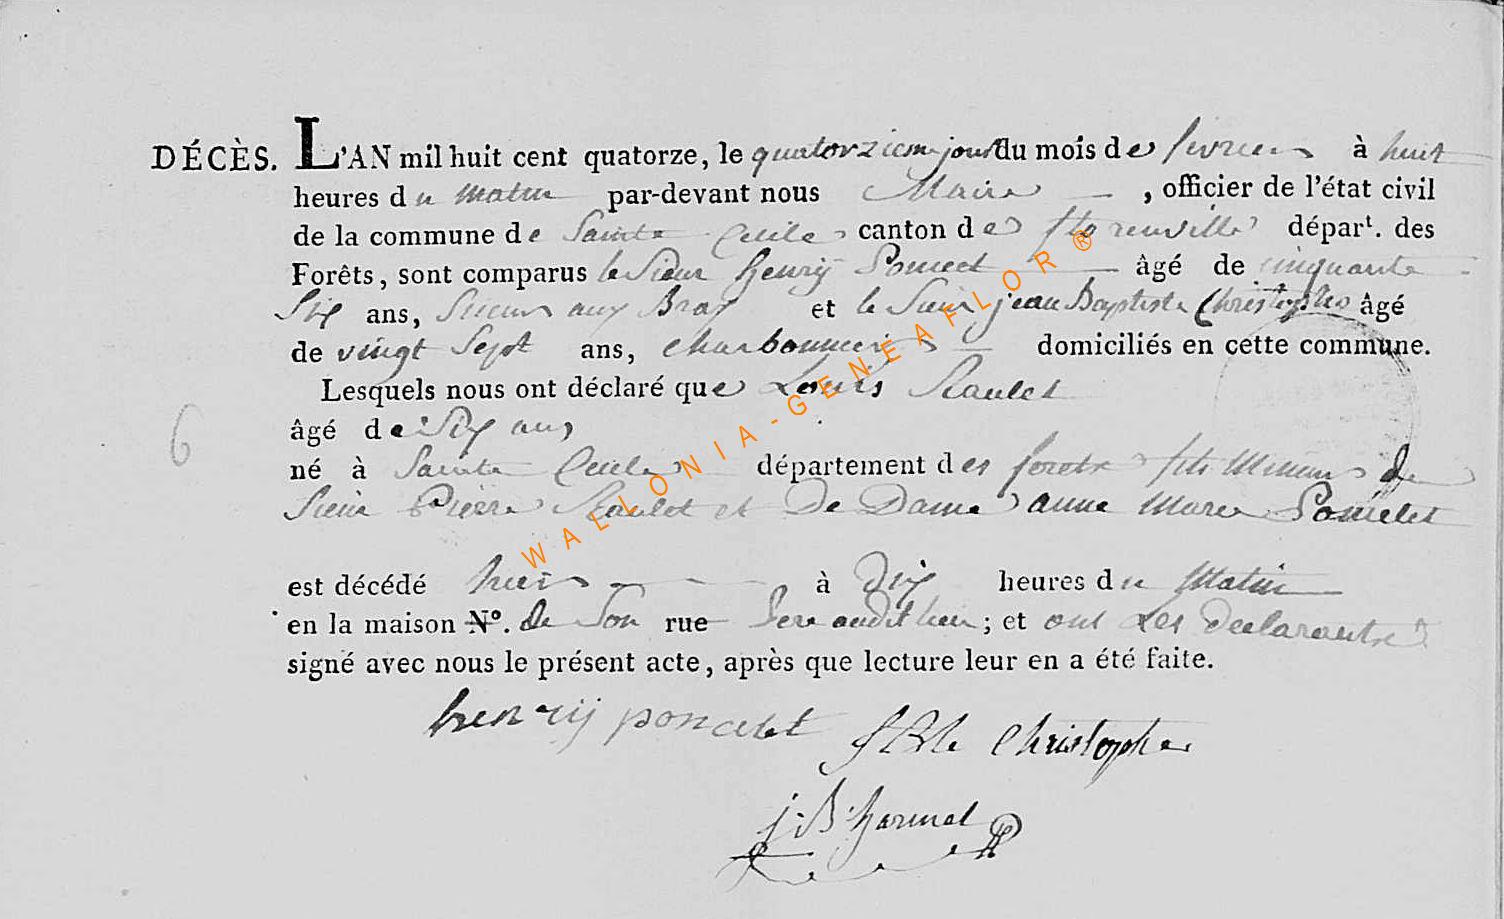 DÉCÈS. L'AN mil huit cent quatorze, le quatorzieme jour du mois de fevrier à huit
heures du matin par-devant nous Maire, officier de l'état civil
de la commune de Sainte Cecile canton de florenville dépar^t. des
Forêts, sont comparus le Sieur henrij Poncelet âgé de cinquante
Six ans, Sieur aux Bras et le Sieur jean Baptiste Christophe âgé
de vingt Sept ans, charbonnier domiciliés en cette commune.
Lesquels nous ont déclaré que Louis
âgé de Six ans
6
né à Sainte Cecile département des forets fils Mineur de
Sieur Pierre et De Dame anne Marie Poncelet
est décédé hier à Dix heures du Matin
en la maison N°. de Son rue Pere audit lieu; et ont Les Declarants
signé avec nous le présent acte, après que lecture leur en a été faite.
henrij poncelet JBte Christophe
j:B harmel
WALLONIA-GENEAFLOR®